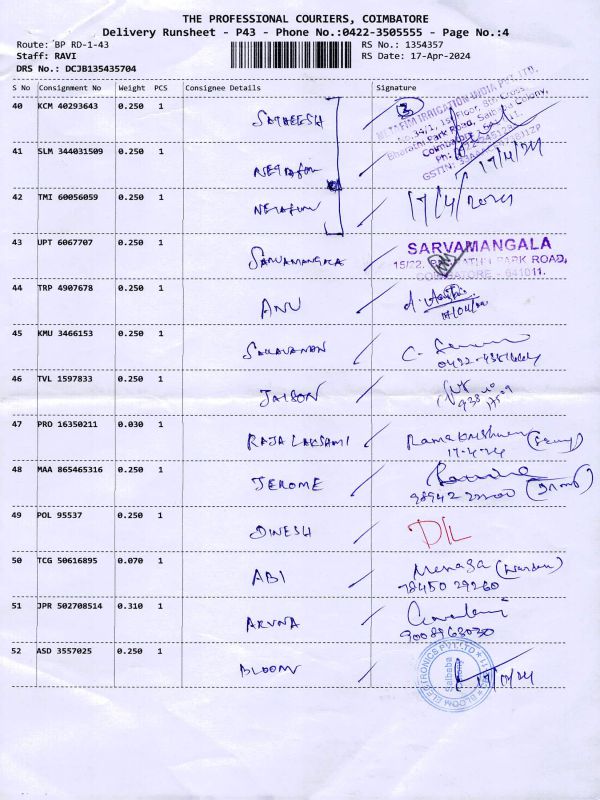 THE PROFESSIONAL COURIERS, COIMBATORE
Delivery Runsheet - P43 - Phone No.:0422-3505555 - Page No.:4
Route: BP RD-1-43 RS No.: 1354357
Staff: RAVI RS Date: 17-Apr-2024
DRS No.: DCJB135435704
S No Consignment No Weight PCS Consignee Details Signature
40 KCM 40293643 0.250 1 SATHEESH 3
NETAFIM IRRIGATION INDIA PVT. LTD.
34/1, 1st Floor, 8th Cross,
Bharathi Park Road, Saibaba Colony,
41 SLM 344031509 0.250 1 NETAFIM 17/4/24
42 TMI 60056059 0.250 1 NETAFIM 17/4/2024
43 UPT 6067707 0.250 1 SARVAMANGALA SARVAMANGALA
15/22, BHARATHI PARK ROAD,
COIMBATORE - 641011.
44 TRP 4907678 0.250 1 ANU
45 KMU 3466153 0.250 1 SARAVANAN
46 TVL 1597833 0.250 1 JAISON
47 PRO 16350211 0.030 1 RAJA LAKSAMI Ramakrishnan
17-4-24
48 MAA 865465316 0.250 1 JEROME
49 POL 95537 0.250 1 DINESH D/L
50 TCG 50616895 0.070 1 ABI Menaga (Warden)
78450 29260
51 JPR 502708514 0.310 1 ARUNA
9008963030
52 ASD 3557025 0.250 1 BLOOM BLOOM ELECTRONICS PVT LTD
Saibaba